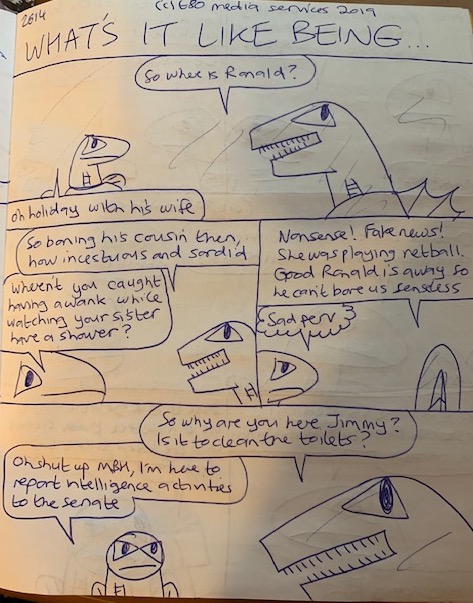 2614
(c) E80 media services 2019
WHAT'S IT LIKE BEING...
So where is Ronald?
on holiday with his wife
So boning his cousin then,
how incestuous and sordid
Wheren't you caught
having a wank while
watching your sister
have a shower?
Nonsense! Fake news!
She was playing netball.
Good Ronald is away so
he can't bore us senseless
Sad perv
So why are you here Jimmy?
Is it to clean the toilets?
Oh shut up MBH, I'm here to
report intelligence activities
to the senate